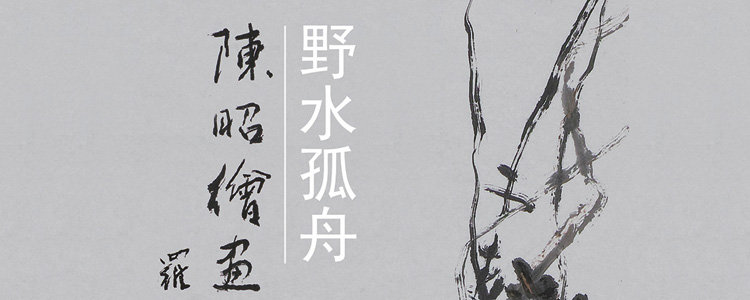 野水孤舟
陳昭繪畫
羅